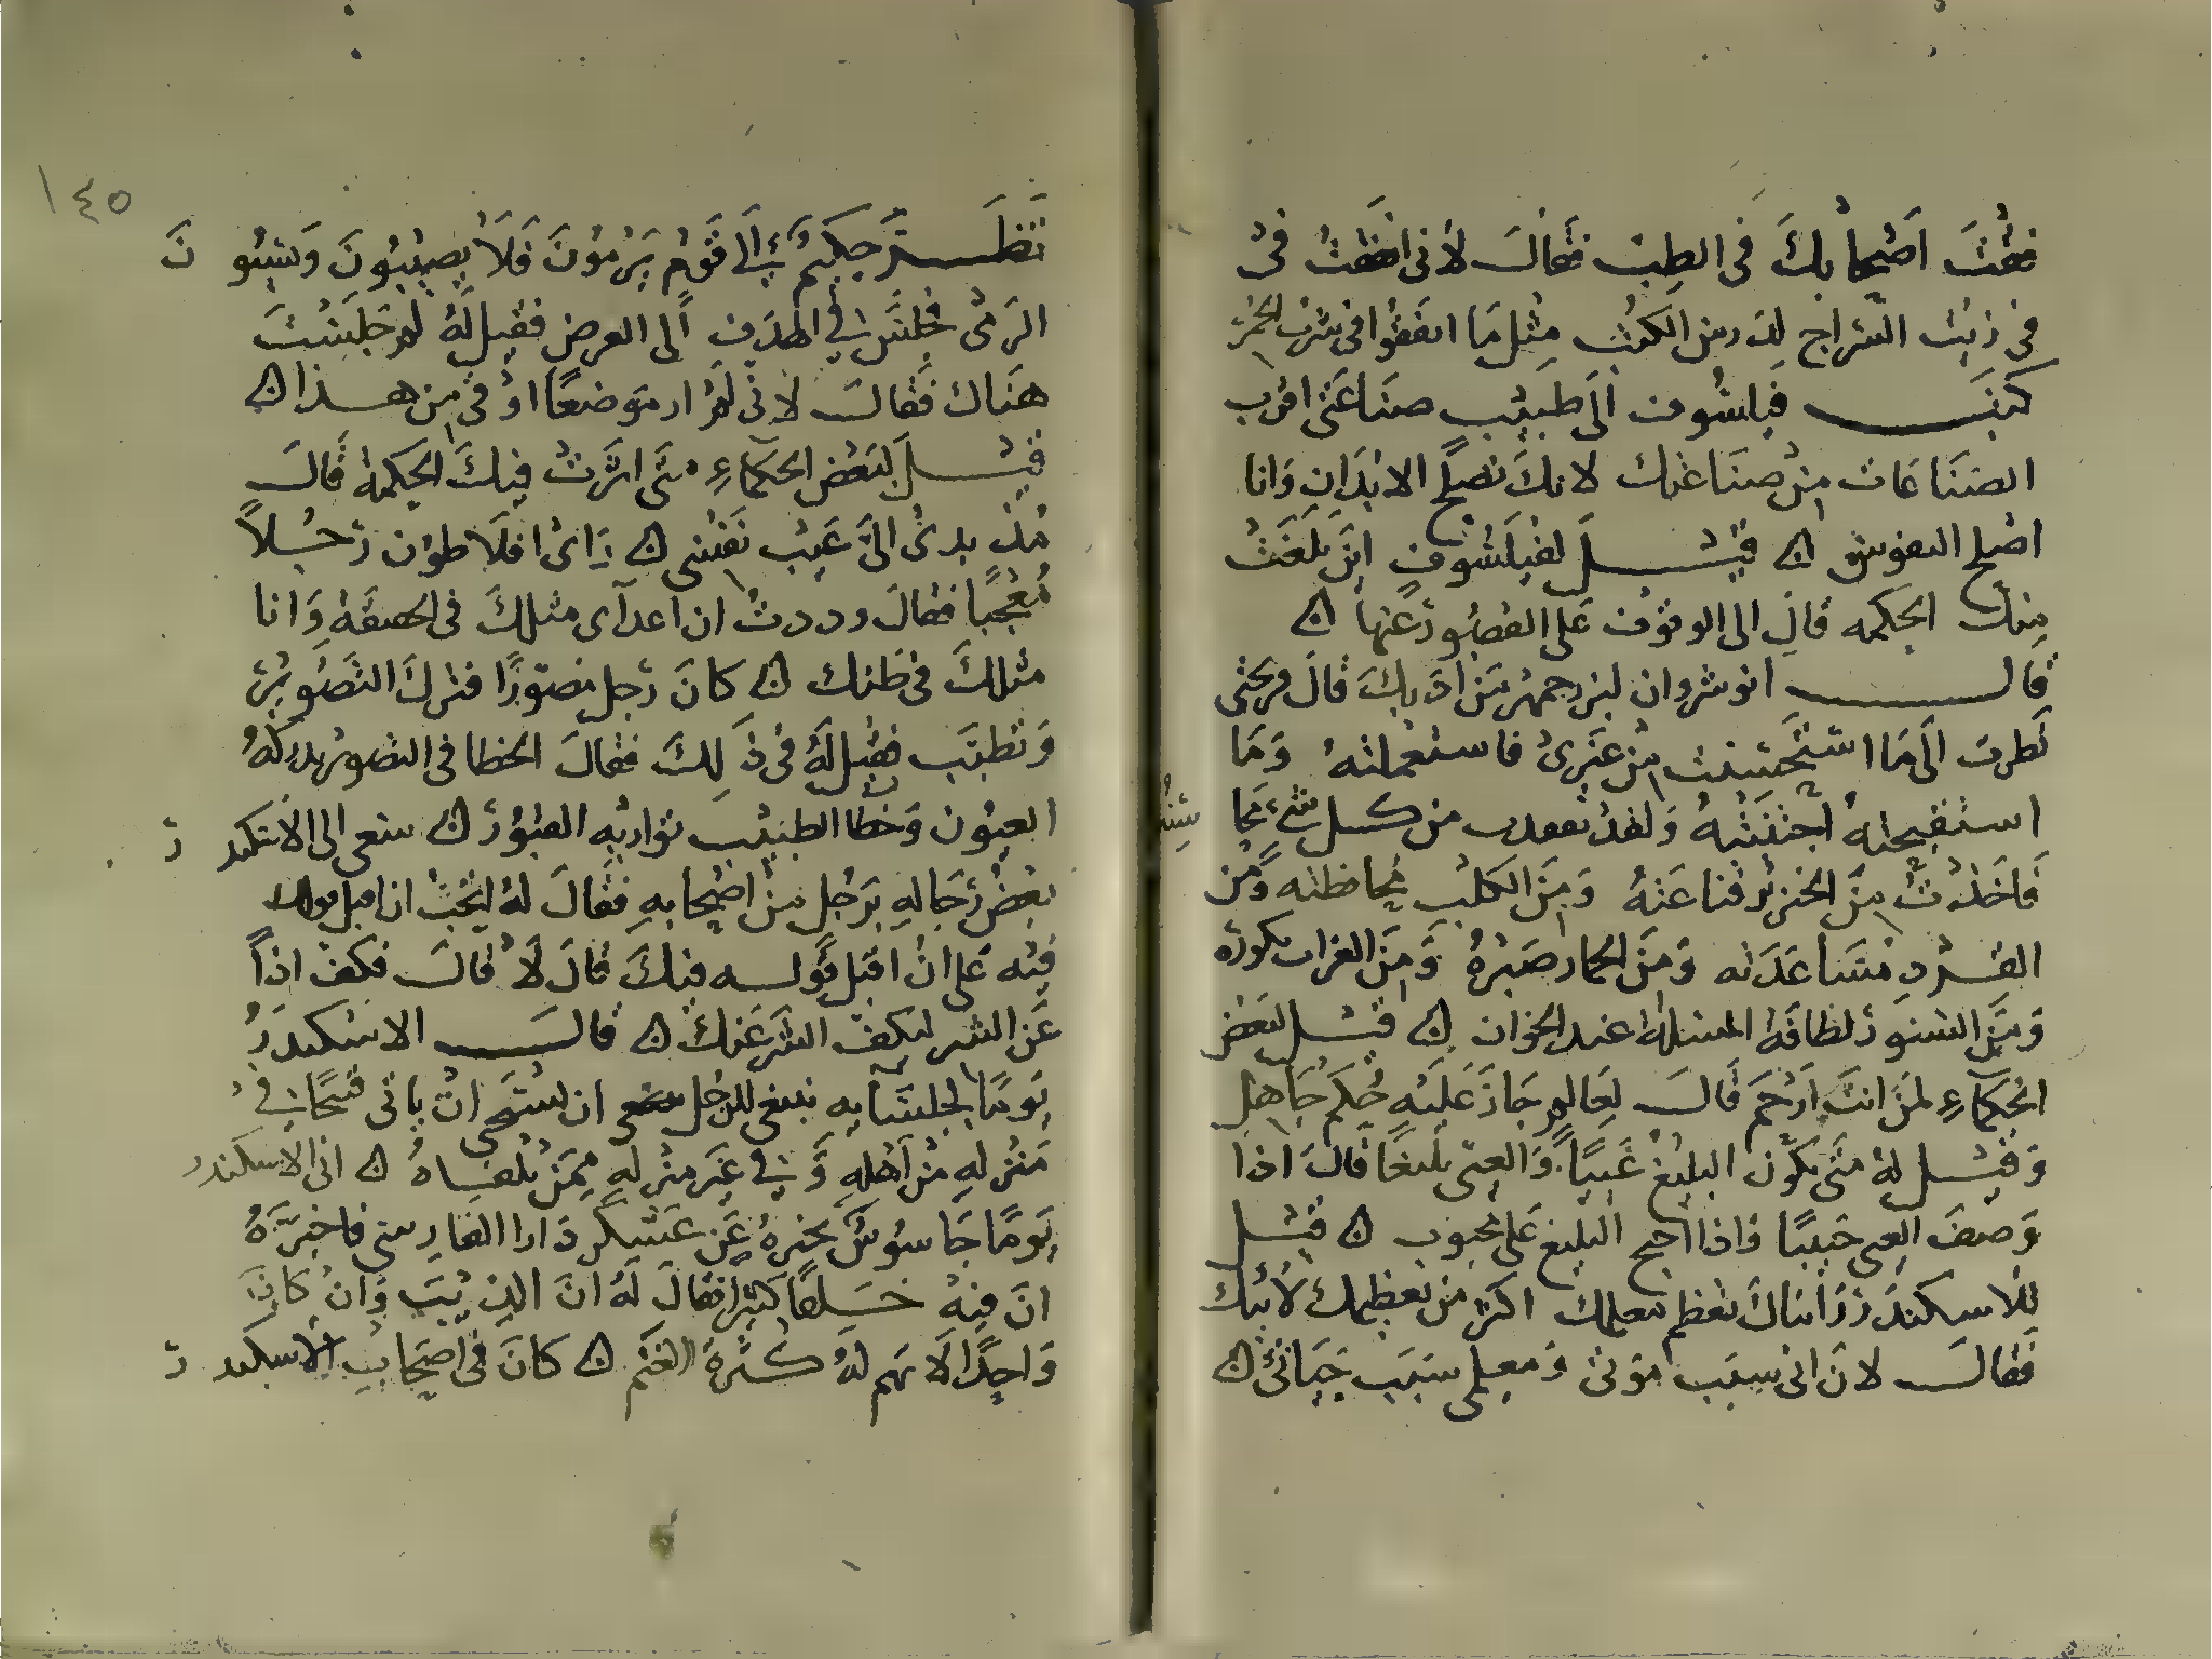 فقت اَصْحابكَ فى الطِب فقالَ لانى انفقتُ فى
فى زيت السراج لدرس الكتب مثل مَا انفقوا فى شرب الخمر
كتبَ فيلسُوف الَى طَبيْب صنَاعَتى اقرب
الصنَاعَات من صنَاعَتك لانكَ تصلح الابدَان وَانا
اصْلح النفوس ن قيْلَ لفيلَسُوفٍ اينَ بلغَتْ
منك الحكمه قالَ الى الوقوف عَلى القصُور عَنها ن
قالَ انوشروان لبزرجمهر مَن ادّبكَ قالَ قريحتى
نظرت الَى مَا استَحسَنت من غيَرى فاستعملتهُ وَمَا
استقبحتهُ اجتنَبتهُ وَلقد تعودت من كل شئ مما
فَاخَذتُ منَ الخنزير قناعَتهُ وَمنَ الكَلب محافظته وَمن
القرد مسَاعَدته وَمنَ الحمار صَبْرهُ وَمنَ الغراب بكوره
وَمنَ السنوَر لطافَة المسئلة عند الخوان ن قيل لبعَض
الحكَمَاءِ لمَن انتَ اَرْحَم قَالَ لعَالم جَازَ عَلَيْهِ حُكم جَاهِل
وَقيْل لهُ متَى يكوُن البليغ غَبيًا وَالعيى بلَيغًا قالَ اذا
وَصفَ العيى حَبيبًا وَاذا احتج البليغ عَلى محبوب ن قيْل
للاسكندَر رَاينَاك تعَظم معلمك اكثر من تعظيمك لاَبيْك
فَقالَ لانَ ابى سبَب موَتى وَمعلمى سبَب حَيَاتى ن
١٤٥
نَظَر حكيمٌ الَى قَوْم يَرْمُونَ فَلَا يصيْبُونَ وَيسيئو نَ
الرَمْى فجلسَ فى الهدَفِ الى العرض فقيل لَهُ لم جَلَسْتَ
هنَاك فَقالَ لانى لَم ار موَضعًا اوْقى من هذا ن
قيْلَ لبَعَض الحكمَاءِ متَى اثرَت فيكَ الحِكمة قَالَ
مُذ بدى الىَّ عَيْب نَفسى ن رَاى افلَاطوُن رَجُلاً
مُعْجَبًا فقالَ وددتُ ان اعدآى مثلكَ فى الحقيقَة وَانا
مثلكَ فى ظَنك ن كانَ رَجل مصَورًا فترك التصْوير
وَتطبَب فقيل لَهُ فى ذَلكَ فقالَ الخطا فى التصْوير تدركهُ
العيوُن وَخطا الطبيْب تواريْه القبُور ن سعى الى الاسْكند ر
بعض رجَاله برَجُل من اصْحابهِ فقَالَ لهُ اتحُبْ ان اقبل قولك
فيْه عَلى انْ اقبَل قَوله فيكَ قالَ لَا قالَ فكف اذًا
عَن الشر ليكف الشر عَنك ن قالَ الاسْكندَرُ
يَومًا لجلسَايه ينبغى للرجُل ان يستَحى انْ ياتى قبحًا فى
مَنزلهِ مِن اَهْلهِ وَفى غيَر منزلهِ ممنَ يلقاهُ ن اتى الاسكندر
يَومًا جَاسُوس يخبرهُ عَن عَسْكر دَارا الفارسى فاخبَرَهُ
انَ فيهُ خَلقًا كثيرا فقالَ لَهُ انَ الذيْب وَانْ كَانَ
وَاحِدًا لَا يَهم لهُ كثرَة الغَنم ن كانَ فى اصحَاب الاسكند ر